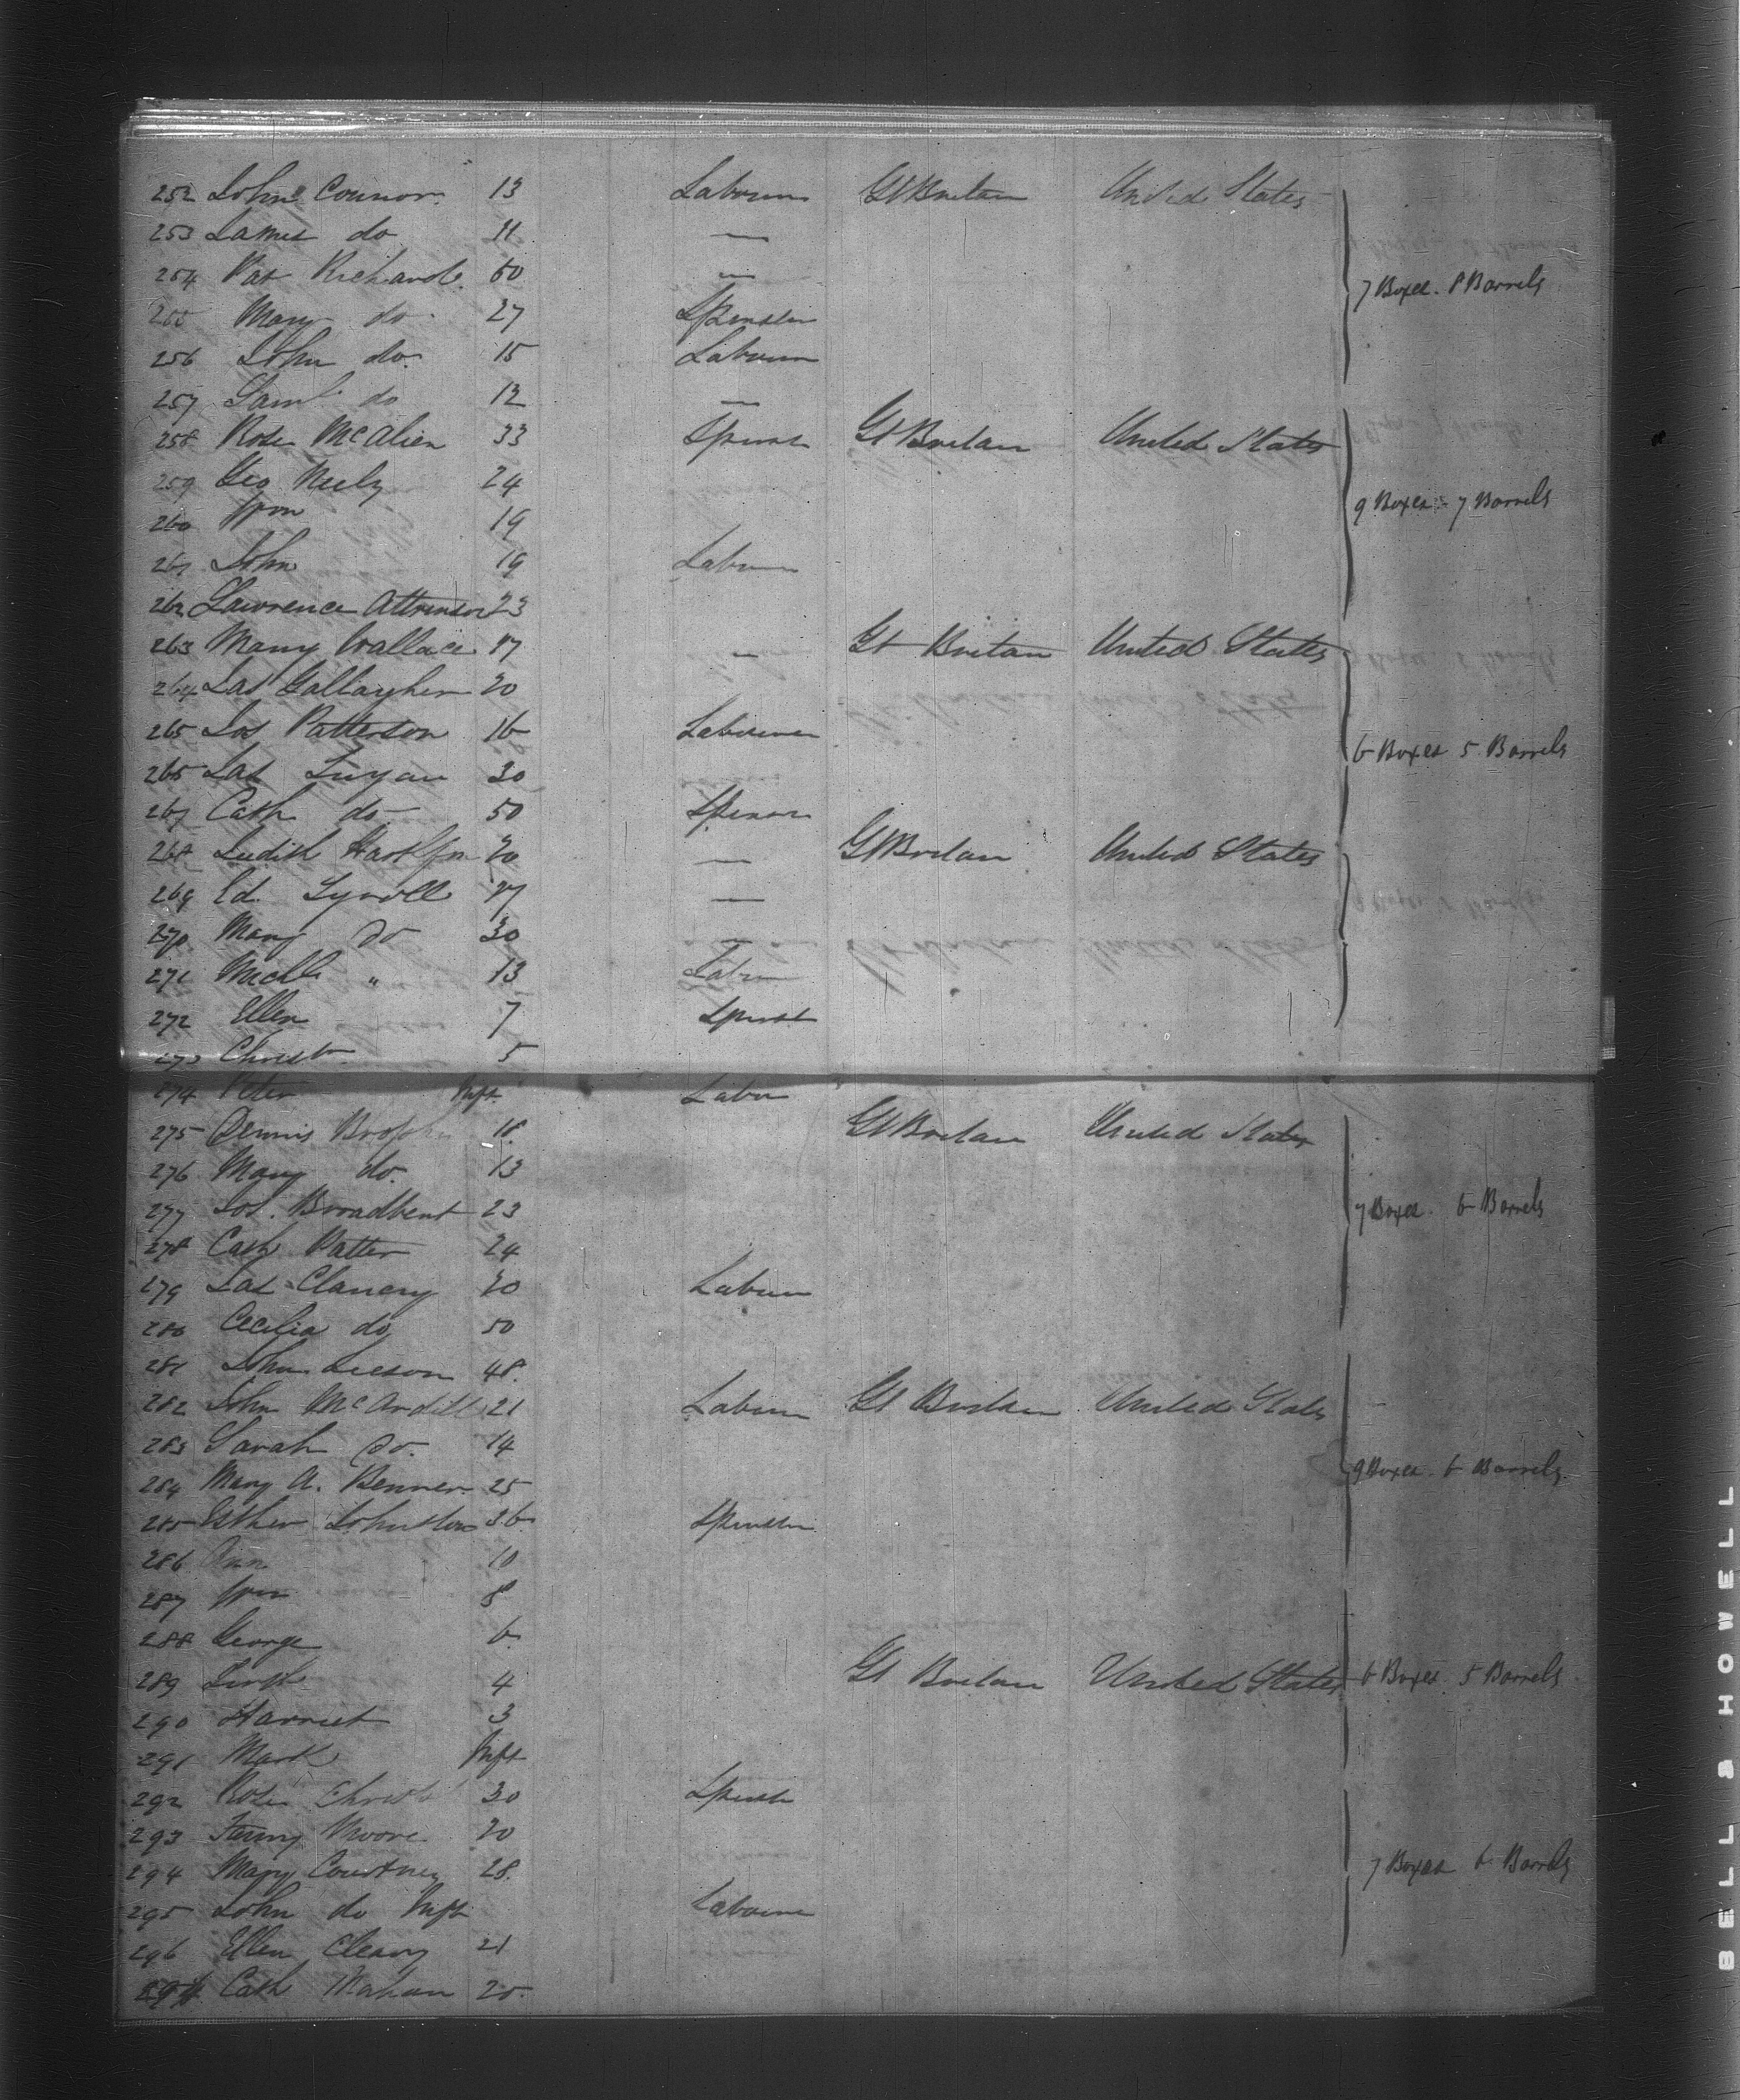 252 John Connor 13 Labourer Gt Britain United States
253 James do 11 —
254 Pat Richards 50 — 7 Boxes. 8 Barrels
255 Mary do 27 Spinster
256 John do. 15 Labourer
257 Saml do 12 —
258 Rose McAlien 33 Spinst Gt Britain United States
259 Geo Neely 24 9 Boxes - 7 Barrels
260 Wm 19
261 John 19 Labour
262 Lawrence Attkinson 23
263 Mary Wallace 17 — Gt Britain United States
264 Jas Gallagher 20
265 Jos Patterson 16 Labourer 6 Boxes 5 Barrels
265 Jas 30
267 Cath do 50 Spinster
268 Judith 20 — Gt Britain United States
269 Ed. 27 —
270 Mary do 30 —
271 Michl " 13 Labour
272 Ellen 7 Spinst
273 Christ 5
274 Peter Inft Labour
275 Dennis Brophy 18 Gt Britain United States
276 Mary do. 13
277 Jos. Broadbent 23 7 Boxes. 6 Barrels
278 Cath Patter 24
279 Jas Clancy 20 Labour
280 Cecilia do 50
281 John Leeson 48.
282 John McArdill 21 Labour Gt Britain United States
283 Sarah do. 14
284 Mary A. Benner 25 9 Boxes. 6 Barrels
285 Esther Johnston 36 Spinster
286 Ann 10
287 Wm 8
288 George 6
289 4 Gt Britain United States 6 Boxes 5 Barrels
290 Harriet 3
291 Mark Inft
292 Rose Christ 30 Spinst
293 Fanny Moore 20
294 Mary Courtney 28. 7 Boxes 6 Barrels
295 John do Inft Labourer
296 Ellen Cleary 21
297 Cath Mahan 25.
BELL & HOWELL